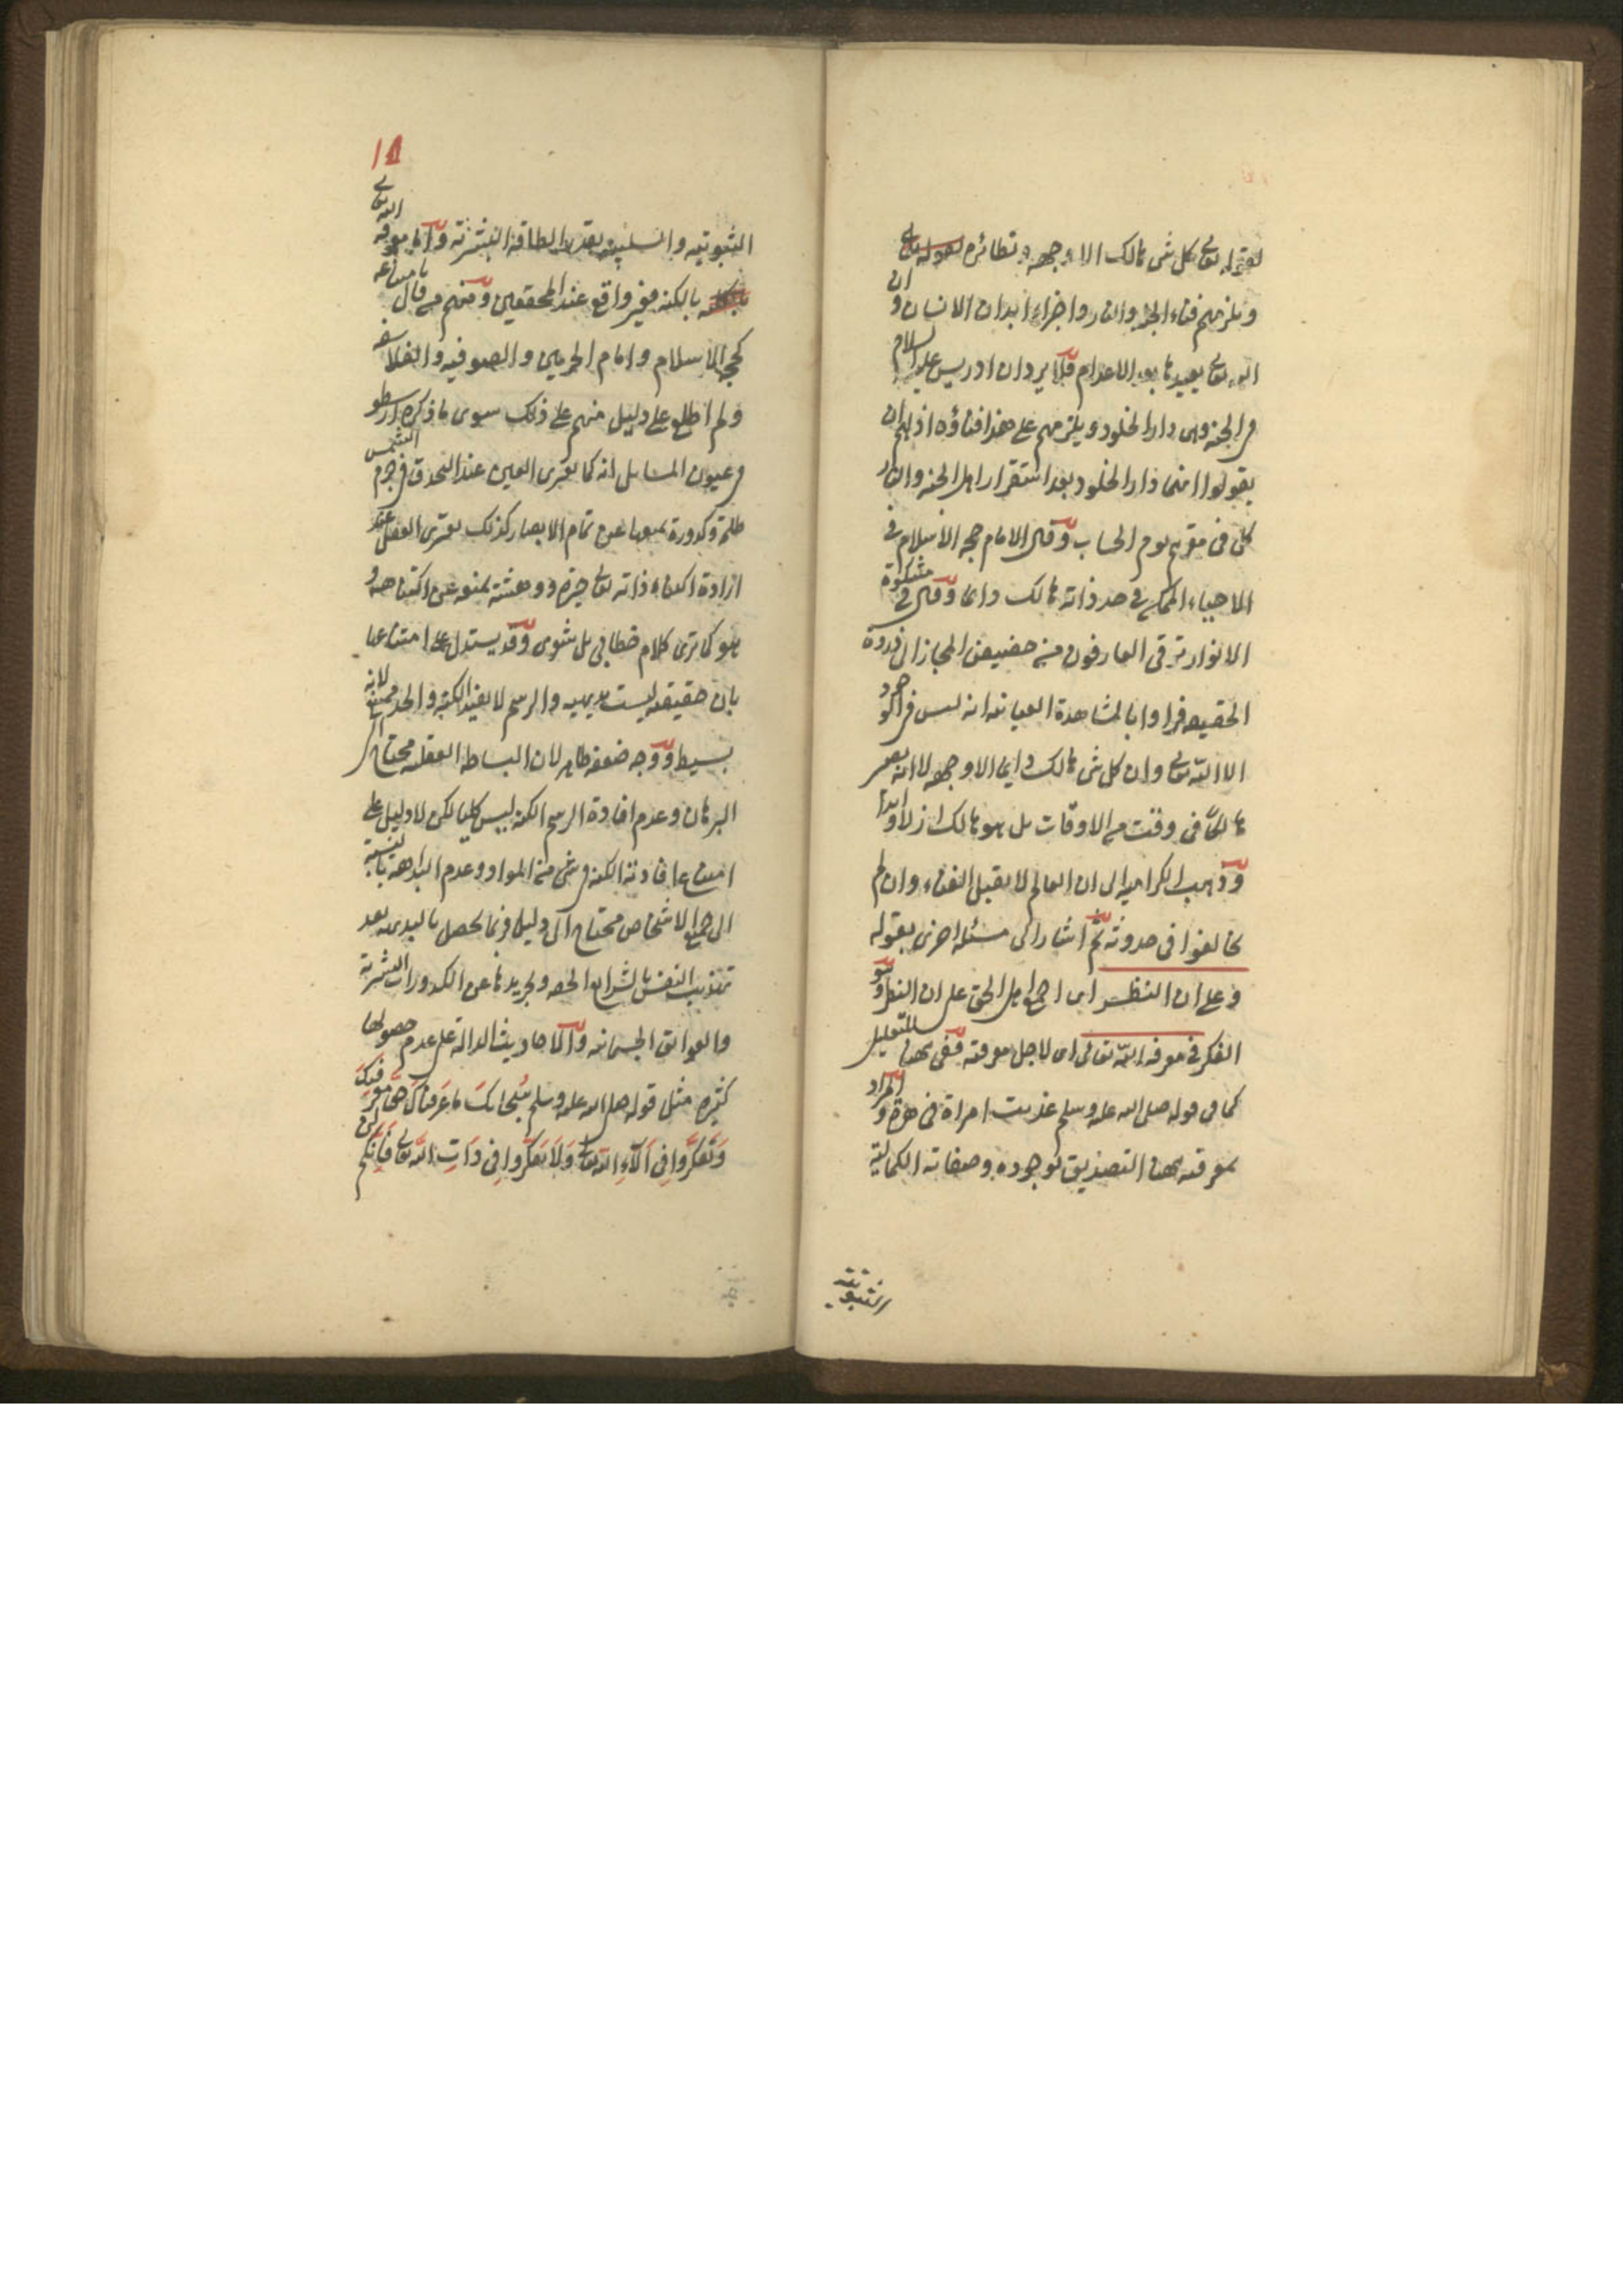 لقوله تعالى كل شئ هالك الا وجهه ونظائره لقوله تعالى
ويلزمهم فناء الجنة والنار واجزاء ابدان الانسان وان
الله تعالى يعيدها بعد الاعدام فلا يرد ان ادريس عليه السلام
في الجنة وهى دار الخلود ويلزمهم على هذا فناؤه اذ لهم ان
يقولوا انها دار الخلود بعد استقرار اهل الجنة والنار
كل في مقره يوم الحساب وقال الامام حجة الاسلام في
الاحياء الممكن في حد ذاته هالك دائما وقال في مشكوة
الانوار ترقى العارفون من حضيض المجاز الى ذروة
الحقيقة فراوا بالمشاهدة العيانية انه ليس في الوجود
الا الله تعالى وان كل شئ هالك دائما الا وجهه لا انه يصير
هالكا في وقت من الاوقات بل هو هالك ازلا وابدا
وذهب الكرامية الى ان العالم لا يقبل الفناء وان لم
يخالفوا في حدوثه ثم اشار الى مسئلة اخرى بقوله
وعلى ان النظر اى اجمع اهل الحق على ان النظر وهو
الفكر في معرفة الله تعالى اى لاجل معرفته ففى ههنا للتعليل
كما فى قوله صلى الله عليه وسلم عذبت امراة في هرة والمراد
بمعرفته ههنا التصديق بوجوده وصفاته الكمالية
الثبوتية
١٨
الثبوتيه والسلبية بقدر الطاقة البشرية واما معرفة الله تعالى
بالكنه فغير واقع عند المحققين ومنهم من قال بامتناعه
كحجة الاسلام وامام الحرمين والصوفيه والفلاسفه
ولم اطلع على دليل منهم على ذلك سوى ما ذكره ارسطو
في عيون المسائل انه كما يعترى العين عند التحدق في جرم الشمس
ظلمة وكدورة يمنعها عن تمام الابصار كذلك يعترى العقل عند
ارادة اكتناه ذاته تعالى حيرة ودهشة يمنعه عن اكتناهه و
هو كما ترى كلام خطابى بل شعرى وقد يستدل على امتناعها
بان حقيقته ليست بديهيه والرسم لا يفيد الكنه والحد ممتنع لانه
بسيط ووجه ضعفه ظاهر لان البساطة العقلية محتاج الى
البرهان وعدم افادة الرسم الكنه ليس كليا لكن لا دليل على
امتناع افادته الكنه في شئ من المواد وعدم البداهة بالنسبة
الى جميع الاشخاص محتاج الى دليل فربما يحصل بالبديهة بعد
تهذيب النفس بالشرائع الحقه وتجريدها عن الكدورات البشرية
والعوائق الجسمانيه والاحاديث الدالة على عدم حصولها
كثيرة مثل قوله صلى الله عليه وسلم سُبحانكَ ما عَرفناكَ حقّ معرفتِكَ
وَتَفكَّروا في آلآءِ اللّه تعالى وَلَا تَفكَّروا فِي ذَاتِ اللّه تعالى فَإنّكم لن